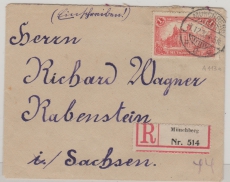 (Einschreiben!)
Herrn
Richard Wagner
Rabenstein
i/ Sachsen.
R
Münchberg
Nr. 514